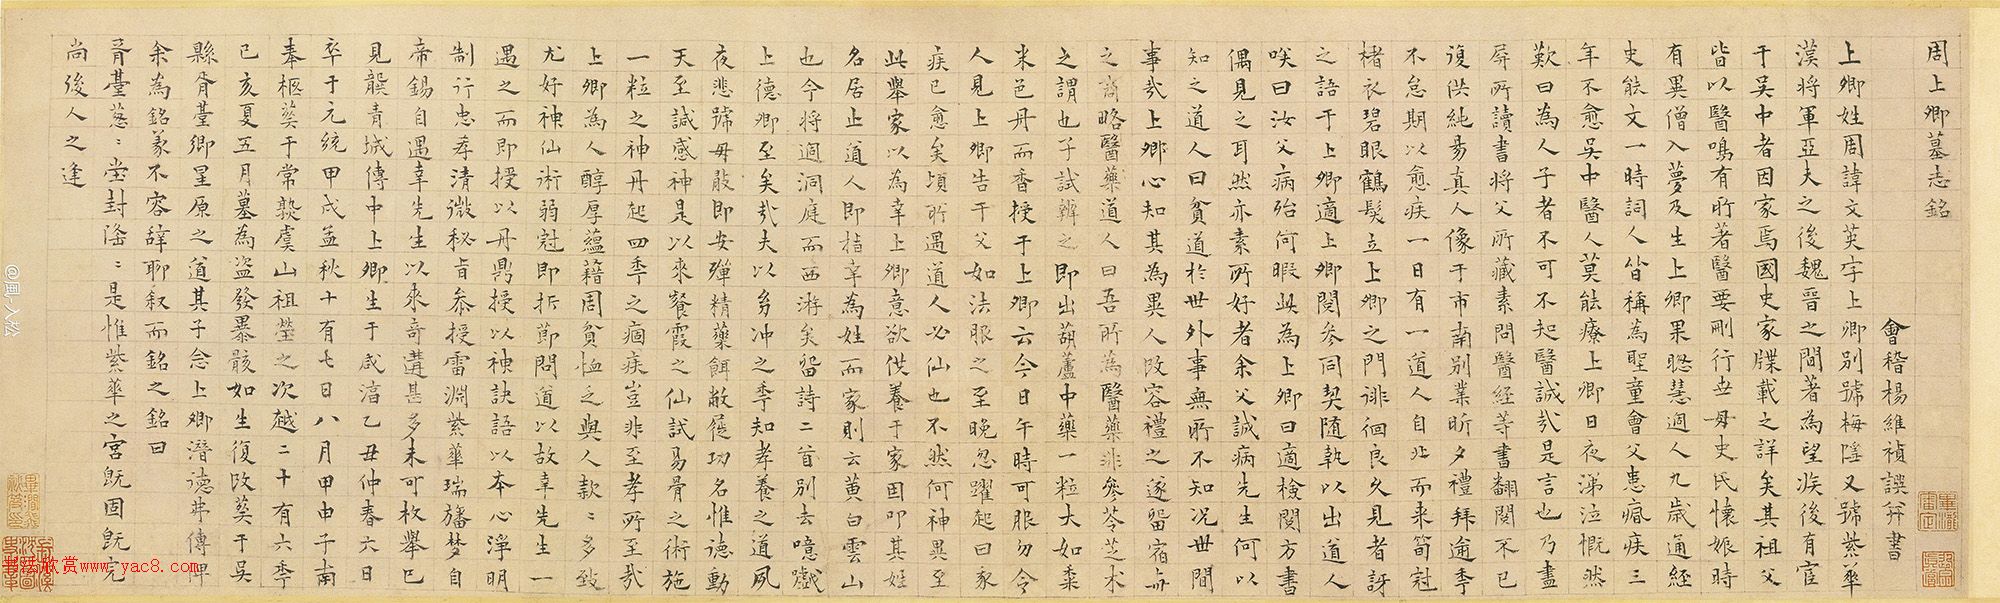 周上卿墓志銘
會稽楊維禎譔并書
上卿姓周諱文英字上卿別號梅隱又號紫華
漢將軍亞夫之後魏晉之間著為望族後有宦
于吳中者因家焉國史家牒載之詳矣其祖父
皆以醫鳴有所著醫要刪行世母史氏懷娠時
有異僧入夢及生上卿果聰慧過人九歲通經
史能文一時詞人皆稱為聖童會父患痼疾三
年不愈吳中醫人莫能療上卿日夜涕泣慨然
歎曰為人子者不可不知醫誠哉是言也乃盡
屏所讀書將父所藏素問醫經等書翻閱不已
復供純昜真人像于市南別業昕夕禮拜逾季
不怠期以愈疾一日有一道人自北而來筍冠
楮衣碧眼鶴髮立上卿之門徘徊良久見者訝
之語于上卿適上卿閱參同契隨執以出道人
唉曰汝父病殆何暇此為上卿曰適檢閱方書
偶見之耳然亦素所好者余父誠病先生何以
知之道人曰貧道於世外事無所不知况世間
事哉上卿心知其為異人改容禮之遂留宿亦
之謂略醫藥道人曰吾所為醫藥非參苓芝术
之謂也子試辨之即出葫蘆中藥一粒大如黍
米色丹而香授于上卿云今日午時可服勿令
人見上卿告于父如法服之至晚忽躍起曰家
疾已愈矣頃所遇道人必仙也不然何神異至
此舉家以為幸上卿意欲供養于家因叩其姓
名居止道人即指幸為姓而家則云黃白雲山
也今將適洞庭而西游矣留詩二首別去噫戲
上德卿至矣哉夫以幼冲之季知孝養之道夙
夜悲號毋敢即安殫精藥餌敝屣功名惟德動
天至諴感神是以來餐霞之仙試昜骨之術施
一粒之神丹起四季之痼疾豈非至孝所至哉
上卿為人醇厚蘊藉周貧恤乏與人款〻多致
尤好神仙術弱冠即折節問道以故幸先生一
遇之而即授以丹鼎授以神訣語以本心淨明
制行忠孝清微秘旨叅授雷淵紫華瑞旛夢自
帝錫自遇幸先生以來奇遘甚多未可枚舉已
見龔青城傳中上卿生于咸淳乙丑仲春六日
卒于元統甲戌孟秋十有七日八月甲申子南
奉柩葬于常熟虞山祖塋之次越二十有六季
已亥夏五月墓為盜發暴骸如生復改葬于吳
縣胥臺鄉星原之道其子念上卿潛德弗傳俾
余為銘義不容辭聊叙而銘之銘曰
胥臺蔥〻堂封隆〻是惟紫華之宮既固既完
尚後人之逢
@風入松
书法欣赏www.yac8.com